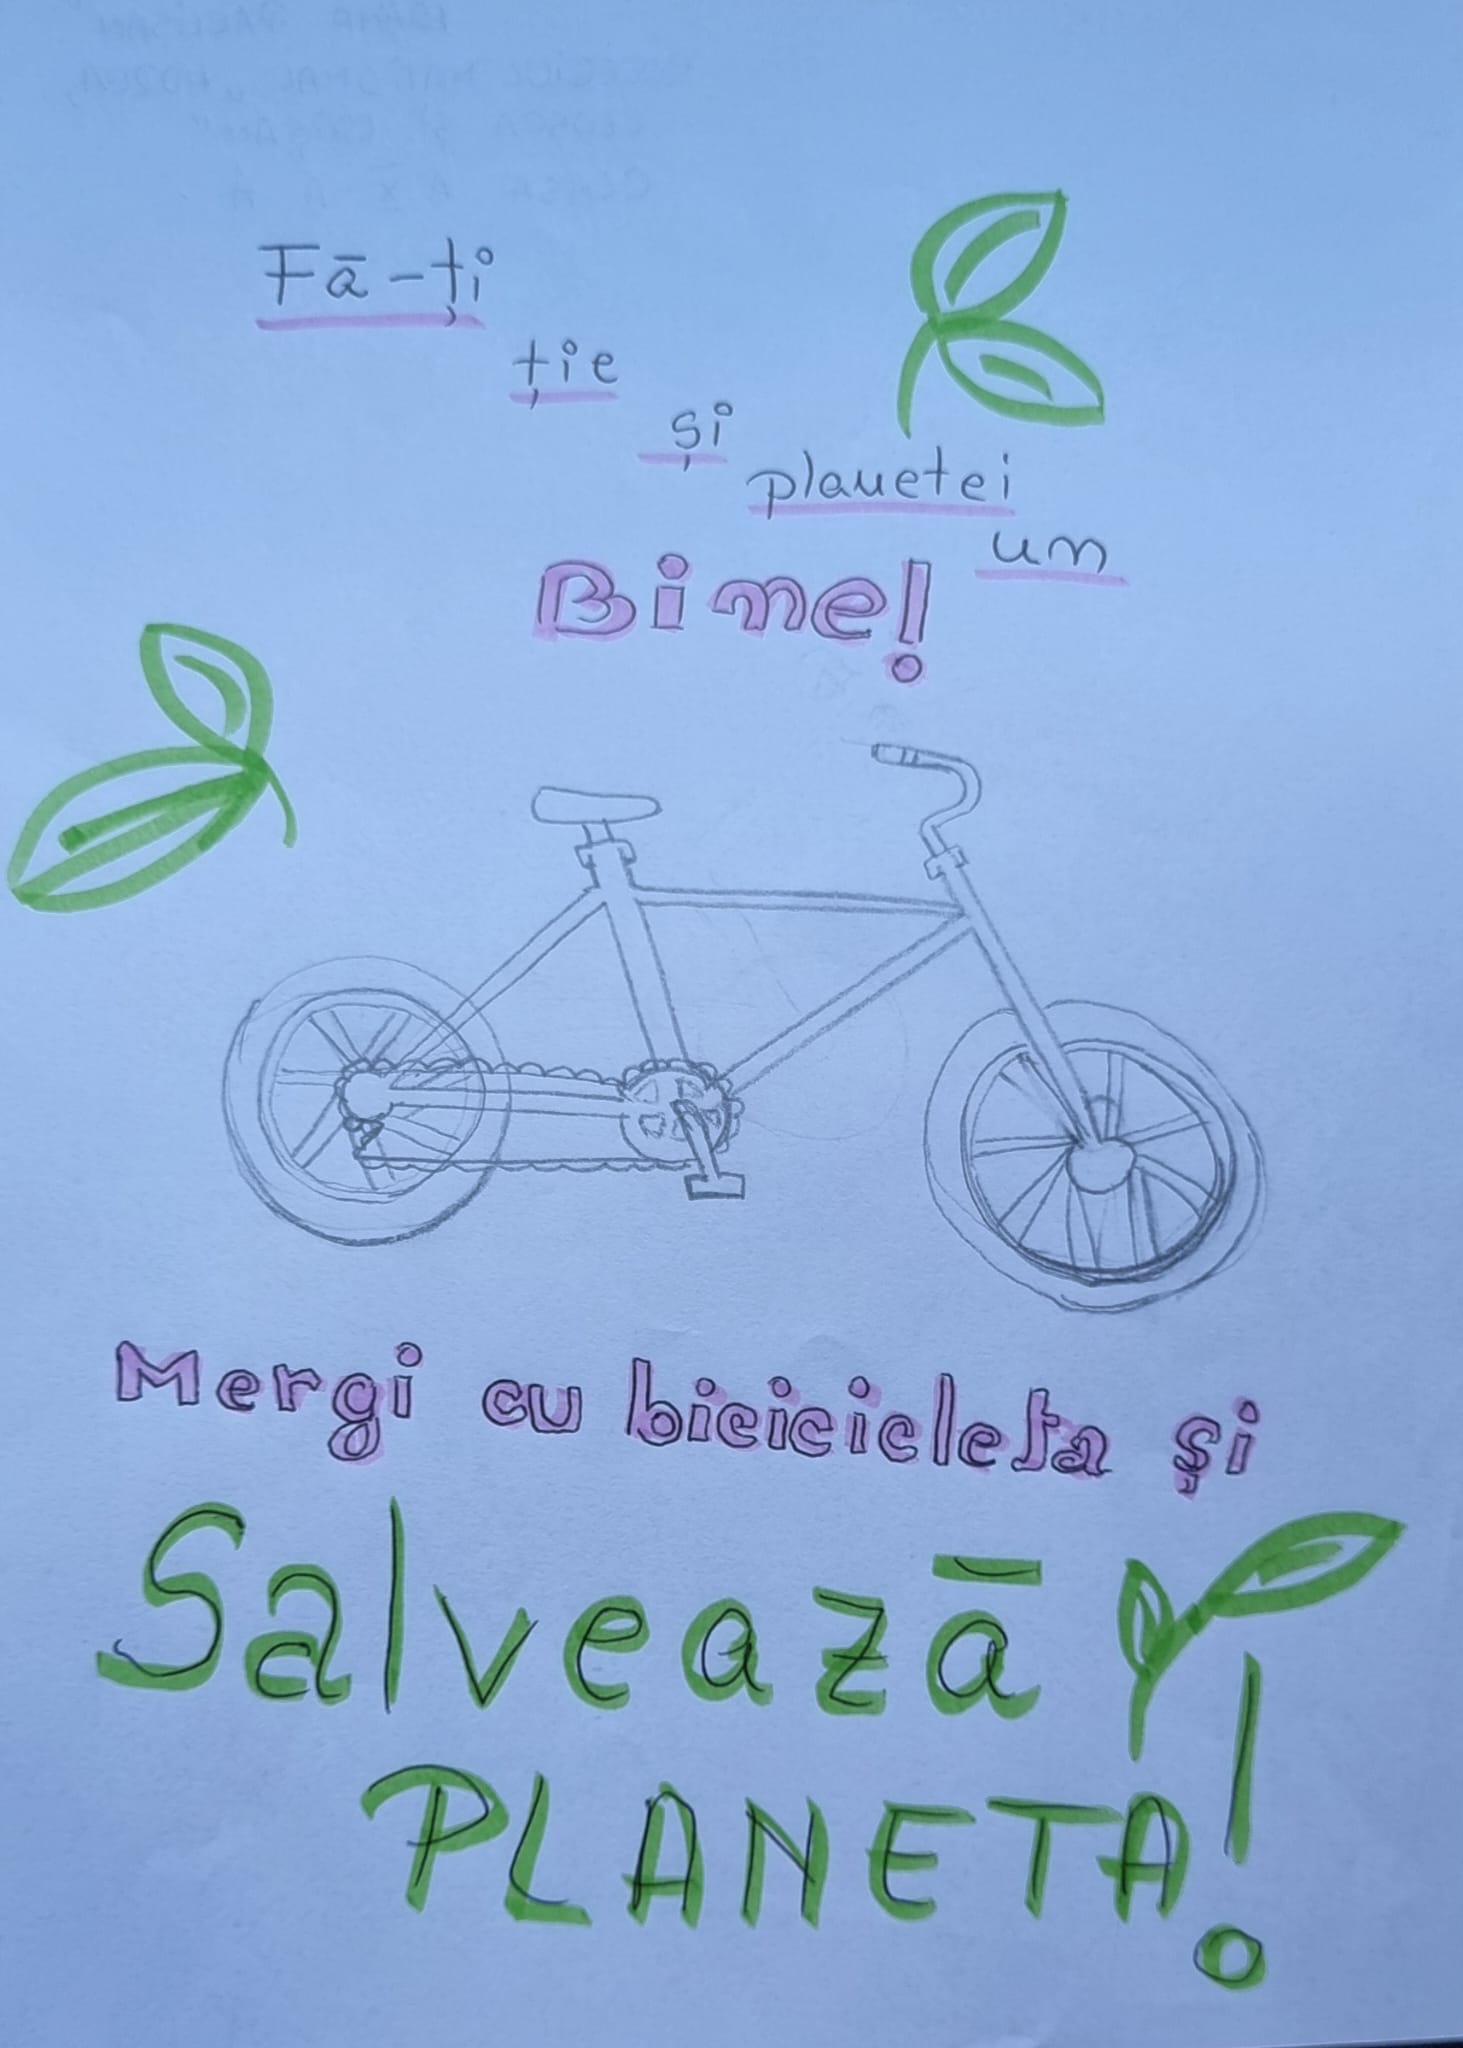 Fă-ți
ție
și
planetei
un
Bine!
Mergi cu bicicicleta și
Salvează
PLANETA!